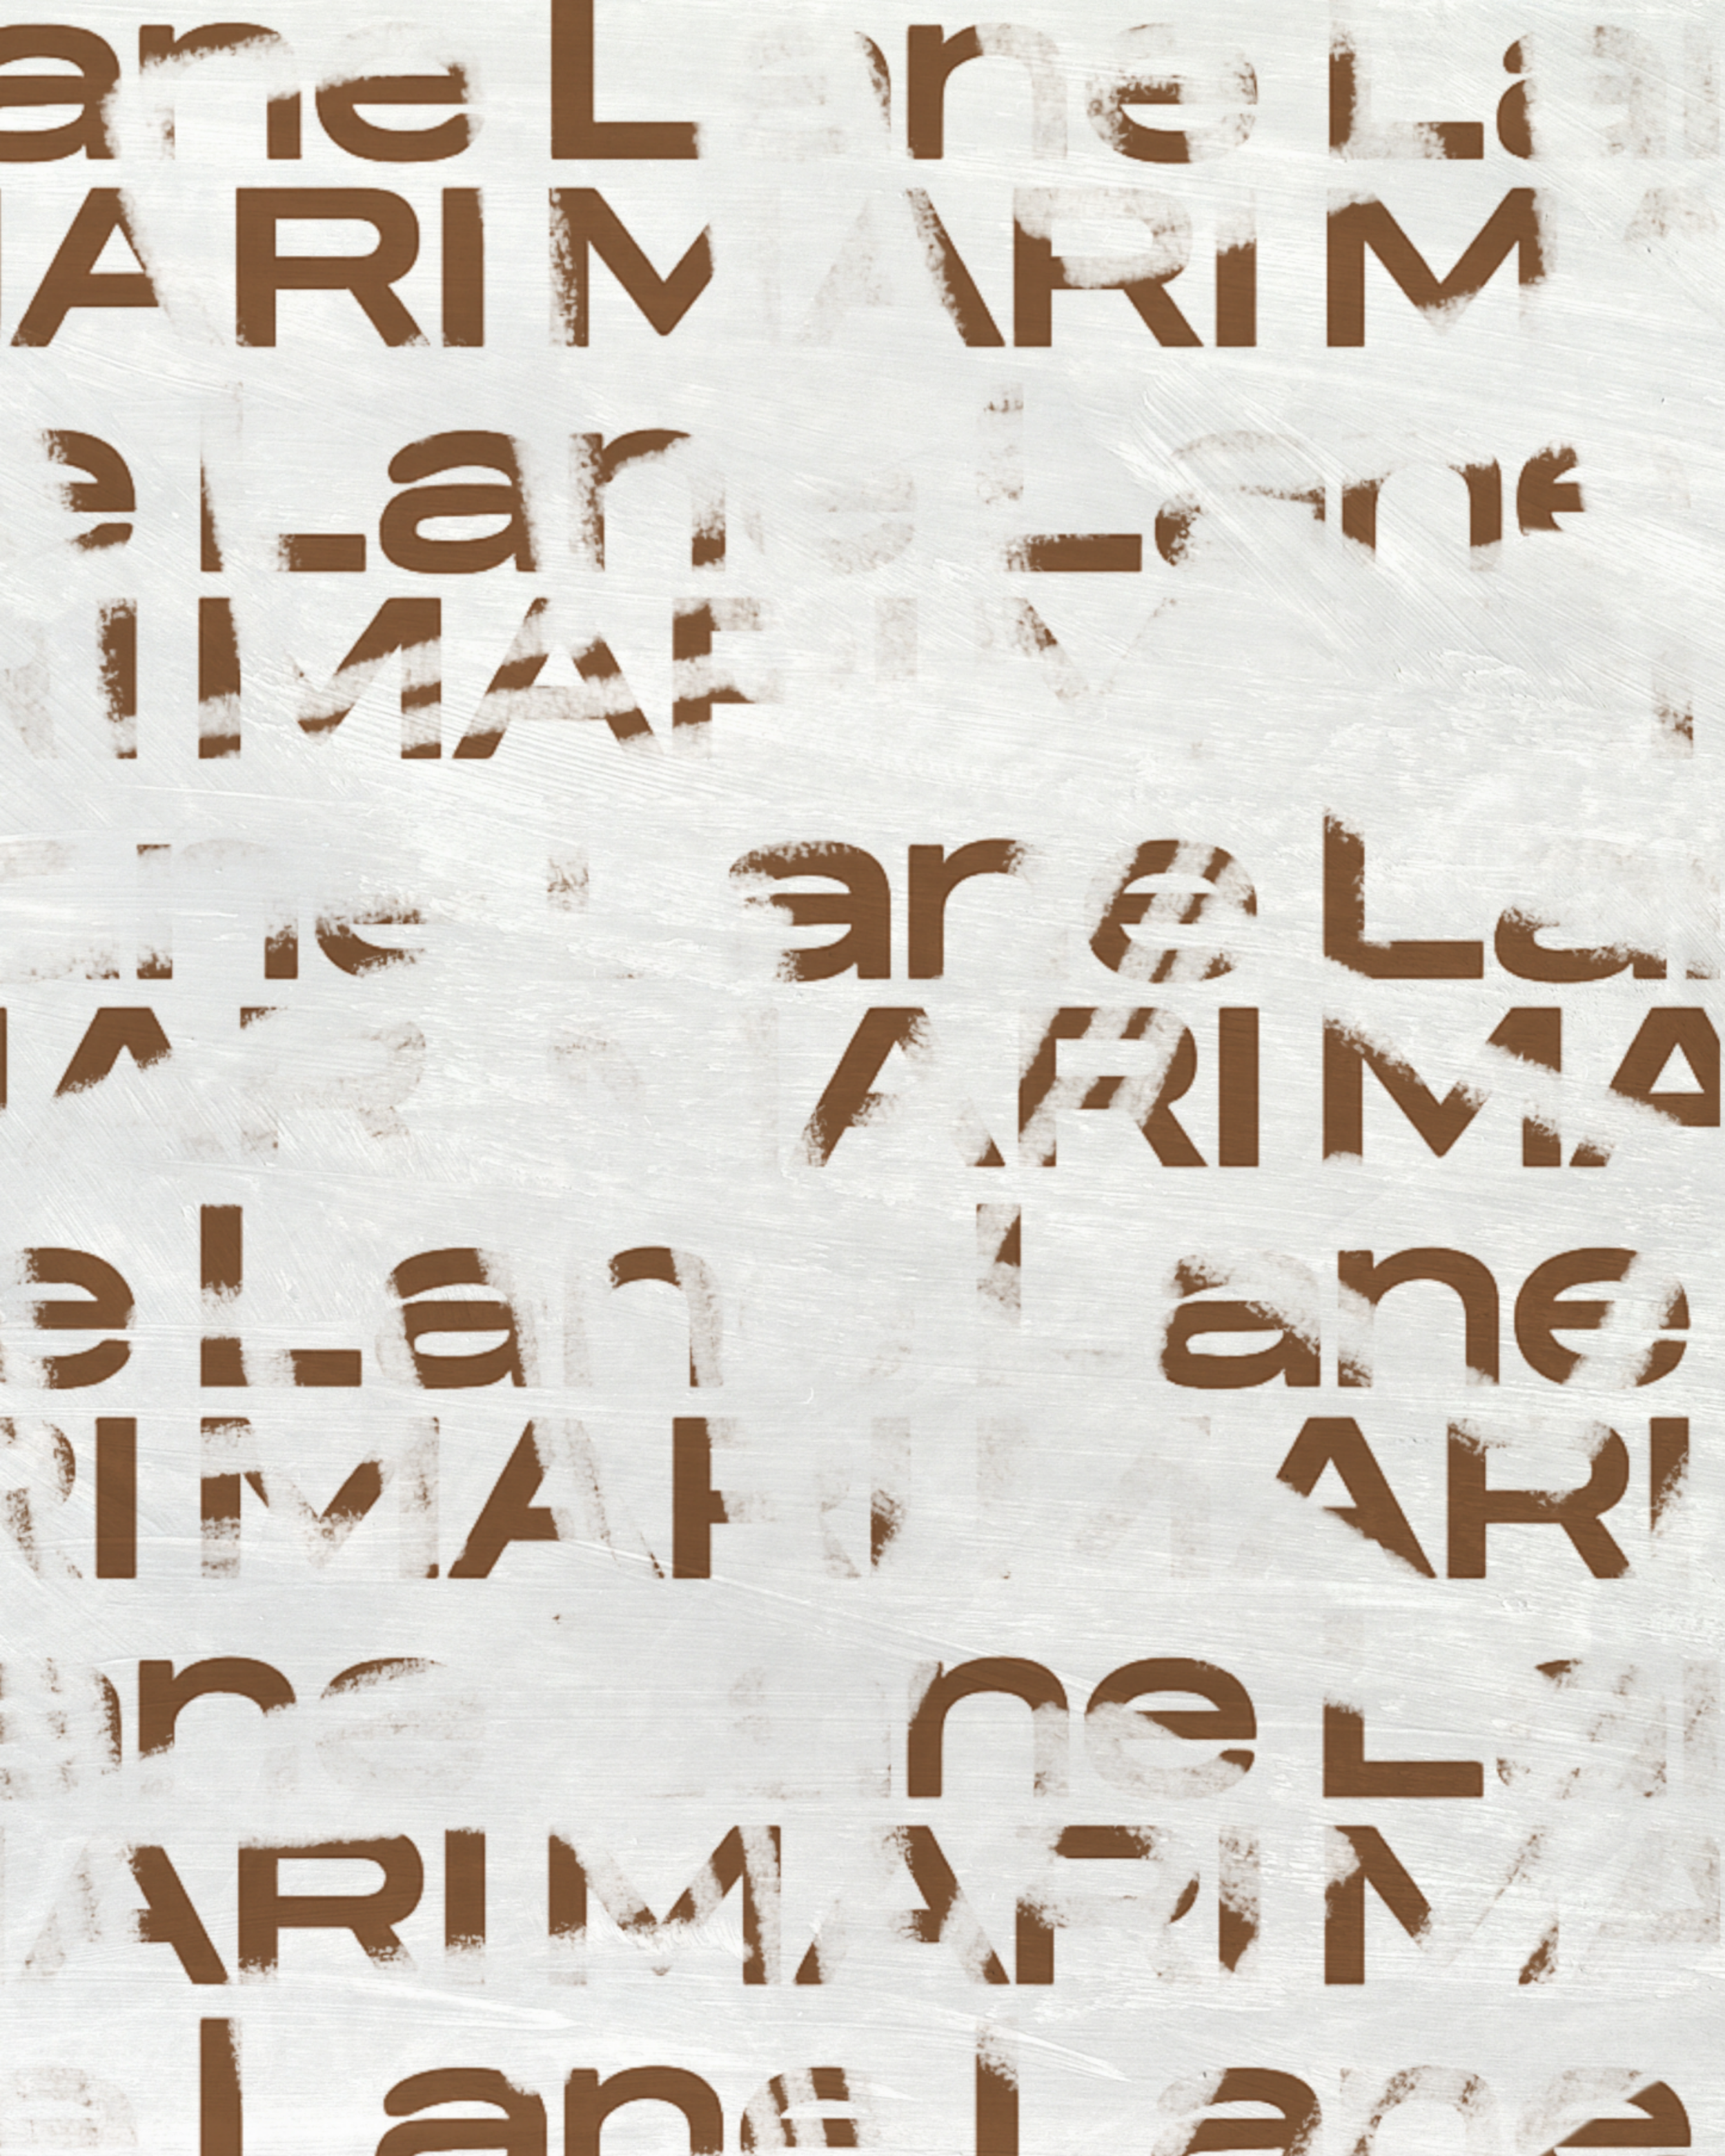 ane Lane La
ARI MARI M
e Lane Lane
I MAR
ne Lane La
MAR ARI MA
e Lan Lane
RI MARI MARI
ane ne La
ARI MARI MA
Lane Lane